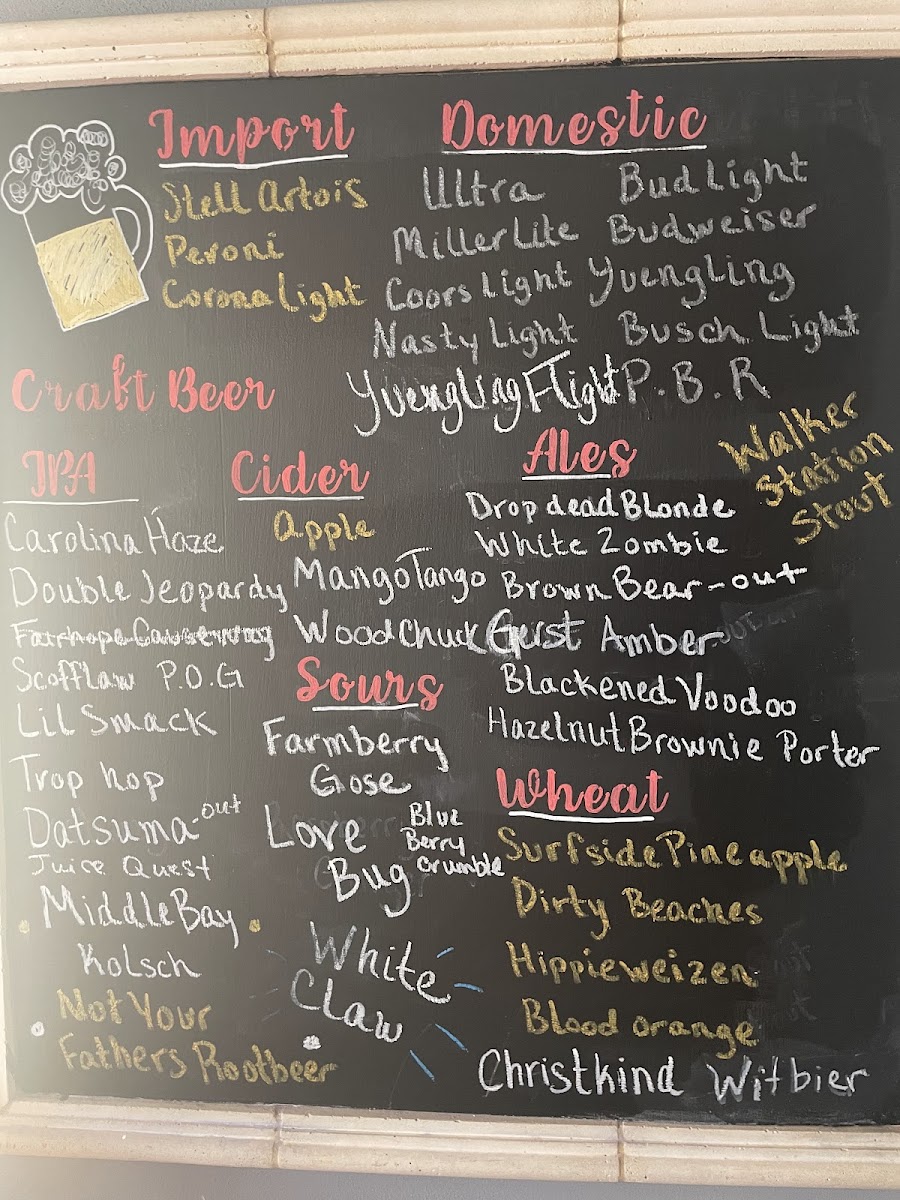 Import
Stell Artois
Peroni
Corona Light
Domestic
Ultra Bud Light
Miller Lite Budweiser
Coors Light Yuengling
Nasty Light Busch Light
Yuengling Flight P.B.R
Craft Beer
IPA
Carolina Haze
Double Jeopardy
Scofflaw P.O.G
Lil Smack
Trop hop
Datsuma-out
Juice Quest
Middle Bay
Kolsch
Not Your
Fathers Rootbeer
Cider
Apple
Mango Tango
Wood Chuck
Sours
Farmberry
Gose
Love
Bug
Blue
Berry
crumble
White
Claw
Ales
Drop dead Blonde
White Zombie
Brown Bear-out
Geist Amber
Blackened Voodoo
Hazelnut Brownie Porter
Walker
Station
Stout
Wheat
Surfside Pineapple
Dirty Beaches
Hippieweizen
Blood orange
Christkind Witbier